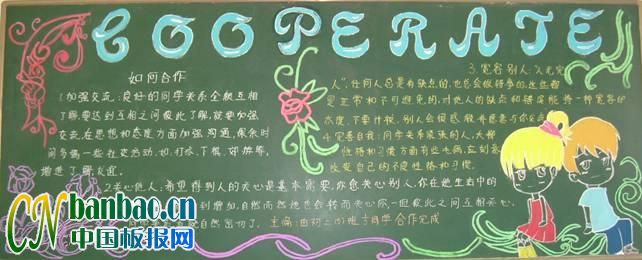 COOPERATE
如何合作
1.加强交流:良好的同学关系全般互相
了解,要达到互相之间彼此了解,就要加强
交流,在思想和态度方面加强沟通,课余时
间多搞一些社交活动,如:打水、下棋、郊游等,
增进了解友谊。
2.关心他人:希望得到人的关心是基本需要,你愈关心别人,你在他生活中的
到增加,自然而然他也会转而关心你,一旦彼此之间互相关心,
自然密切了。
3.宽容别人:“人无完
人”,任何人总是有缺点的,也总会做错事的,这些都
是正常和不可避免的,对他人的缺点和错误能持一种宽容的
态度,下要计较,别人会很感
4.完善自我:同学关系紧张的人,大都
性格和习惯方面有些毛病,应刻意
改变自己的不良性格和习惯。
主编:由初二(1)班
同学合作完成
CN banbao.cn
中国板报网